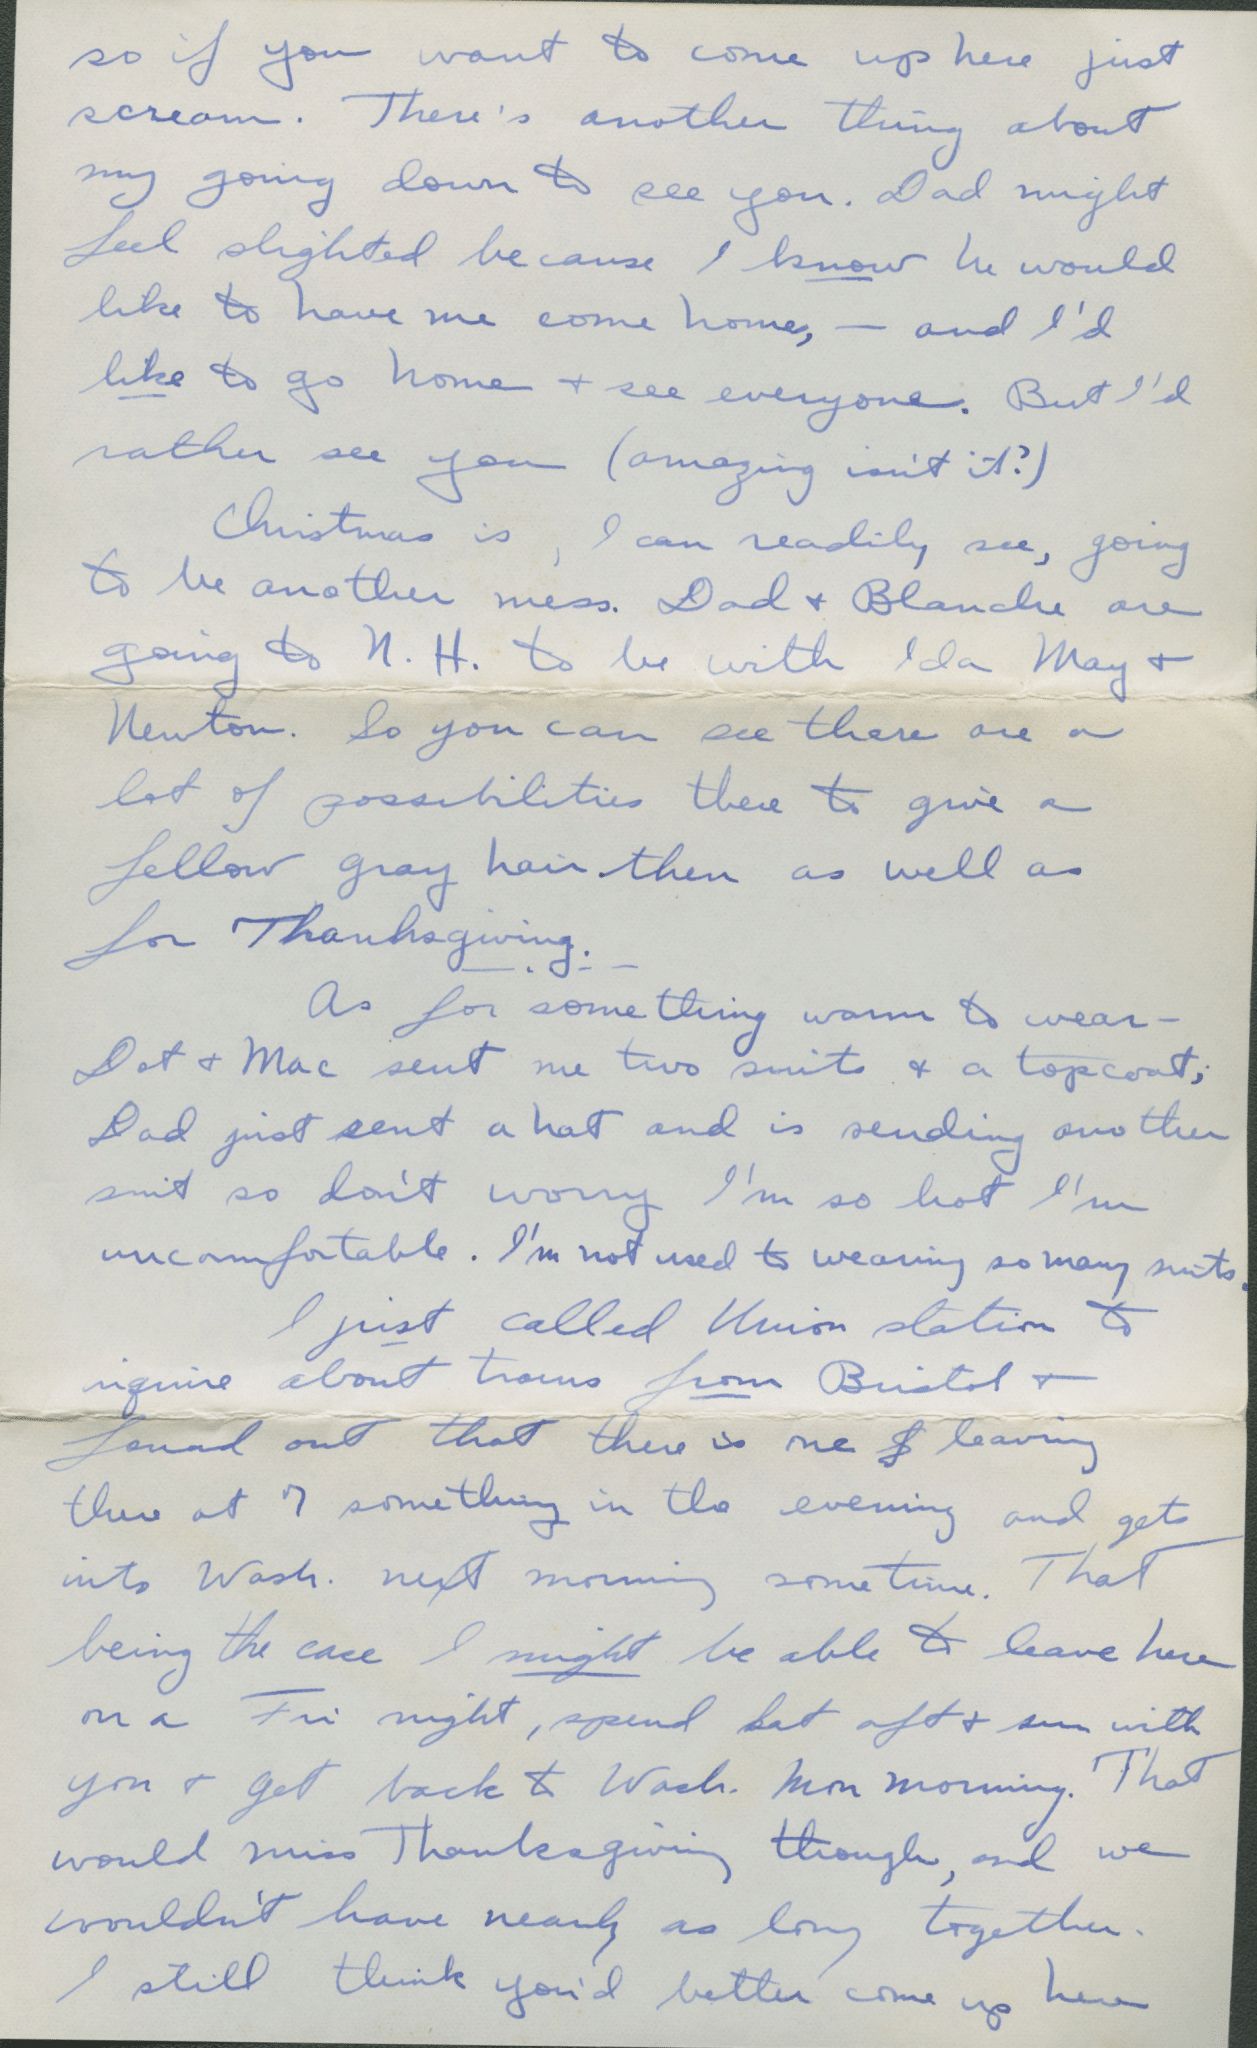 so if you want to come up here just
scream. There's another thing about
my going down to see you. Dad might
feel slighted because I know he would
like to have me come home, — and I'd
like to go home + see everyone. But I'd
rather see you (amazing isn't it?)
Christmas is, I can readily see, going
to be another mess. Dad + Blanche are
going to N. H. to be with Ida May +
Newton. So you can see there are a
lot of possibilities there to give a
fellow gray hair then as well as
for Thanksgiving.
As for something warm to wear –
Dot + Mac sent me two suits + a topcoat;
Dad just sent a hat and is sending another
suit so don't worry I'm so hot I'm
uncomfortable. I'm not used to wearing so many suits.
I just called Union station to
inquire about trains from Bristol +
found out that there is one leaving
there at 7 something in the evening and gets
into Wash. next morning sometime. That
being the case I might be able to leave here
on a Fri night, spend Sat aft + sun with
you + get back to Wash. Mon morning. That
would miss Thanksgiving though, and we
wouldn't have nearly as long together.
I still think you'd better come up here